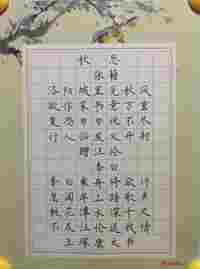 秋思
张籍
洛阳城里见秋风
欲作家书意万重
复恐匆匆说不尽
行人临发又开封
赠汪伦
李白
李白乘舟将欲行
忽闻岸上踏歌声
桃花潭水深千尺
不及汪伦送我情